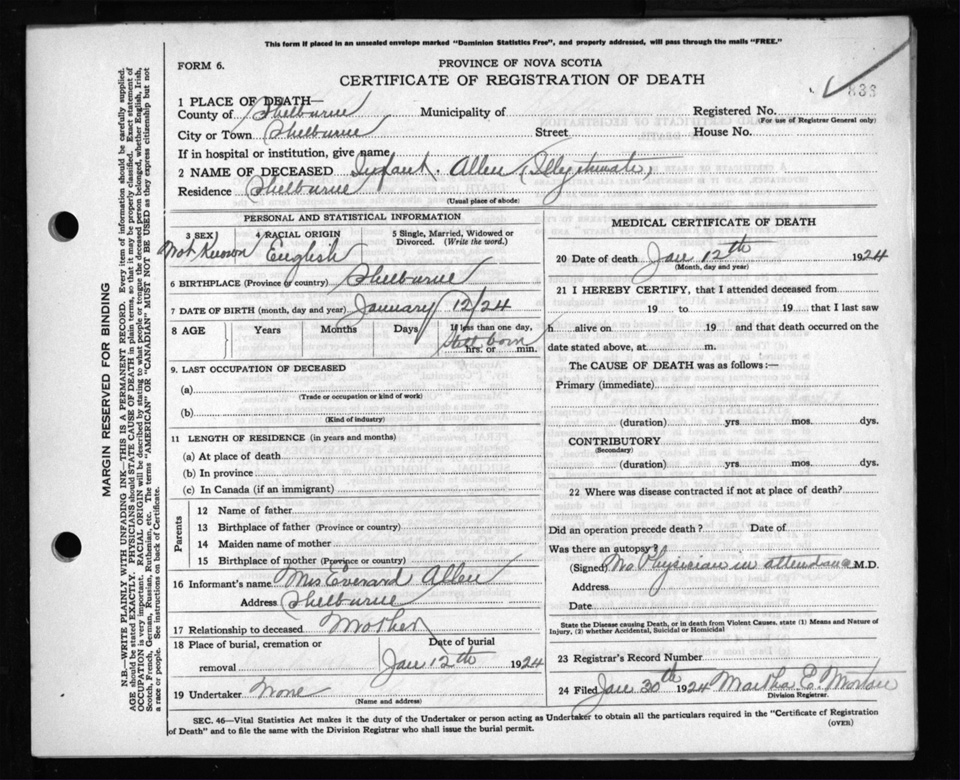 This form if placed in an unsealed envelope marked "Dominion Statistics Free", and properly addressed, will pass through the mails "FREE."
FORM 6.
PROVINCE OF NOVA SCOTIA
CERTIFICATE OF REGISTRATION OF DEATH
833
1 PLACE OF DEATH—
County of Shelburne Municipality of Registered No.
(For use of Registrar General only)
City or Town Shelburne Street House No.
If in hospital or institution, give name
2 NAME OF DECEASED Infant. Allen (Illegitimate)
Residence Shelburne
(Usual place of abode)
PERSONAL AND STATISTICAL INFORMATION
3 SEX 4 RACIAL ORIGIN 5 Single, Married, Widowed or Divorced. (Write the word.)
Not Known English
6 BIRTHPLACE (Province or country) Shelburne
7 DATE OF BIRTH (month, day and year) January 12/24
8 AGE Years Months Days If less than one day,
Still born
hrs. or min.
9. LAST OCCUPATION OF DECEASED
(a)
(Trade or occupation or kind of work)
(b)
(Kind of industry)
11 LENGTH OF RESIDENCE (in years and months)
(a) At place of death
(b) In province
(c) In Canada (if an immigrant)
Parents
12 Name of father
13 Birthplace of father (Province or country)
14 Maiden name of mother
15 Birthplace of mother (Province or country)
16 Informant's name Mrs Everard Allen
Address Shelburne
17 Relationship to deceased Mother
18 Place of burial, cremation or removal
Date of burial
Jan 12th 1924
19 Undertaker None
(Name and address)
MEDICAL CERTIFICATE OF DEATH
20 Date of death Jan 12th 1924
(Month, day and year)
21 I HEREBY CERTIFY, that I attended deceased from
19 to 19 that I last saw
h alive on 19 and that death occurred on the
date stated above, at m.
The CAUSE OF DEATH was as follows:—
Primary (immediate)
(duration) yrs mos. dys.
CONTRIBUTORY
(Secondary)
(duration) yrs. mos. dys.
22 Where was disease contracted if not at place of death?
Did an operation precede death? Date of
Was there an autopsy?
(Signed) No Physician in attendance M.D.
Address
Date
State the Disease causing Death, or in death from Violent Causes, state (1) Means and Nature of
Injury, (2) whether Accidental, Suicidal or Homicidal
23 Registrar's Record Number
24 Filed Jan 30th 1924 Martha E. Morton
Division Registrar.
SEC. 46—Vital Statistics Act makes it the duty of the Undertaker or person acting as Undertaker to obtain all the particulars required in the "Certificate of Registration
of Death" and to file the same with the Division Registrar who shall issue the burial permit.
(OVER)
MARGIN RESERVED FOR BINDING
N.B.—WRITE PLAINLY WITH UNFADING INK—THIS IS A PERMANENT RECORD. Every item of information should be carefully supplied.
AGE should be stated EXACTLY. PHYSICIANS should STATE CAUSE OF DEATH in plain terms, so that it may be properly classified. Exact statement of
OCCUPATION is very important. RACIAL ORIGIN will be described by stating to what people or tongue the deceased person belonged, whether English, Irish,
Scotch, French, German, Russian, Ruthenian, etc. The terms "AMERICAN" OR "CANADIAN" MUST NOT BE USED as they express citizenship but not
a race or people. See instructions on back of Certificate.